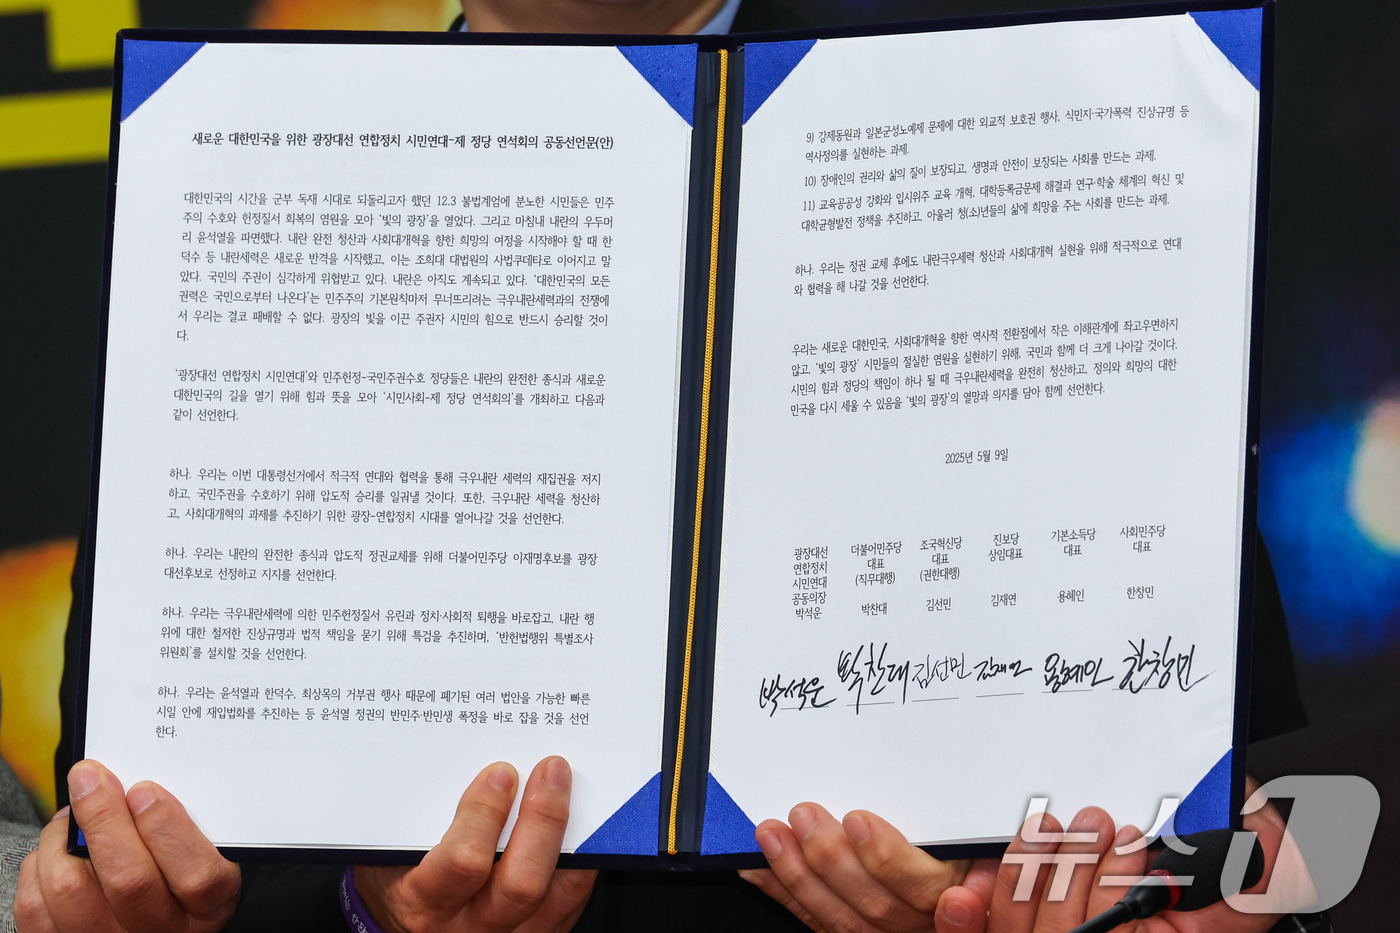 새로운 대한민국을 위한 광장대선 연합정치 시민연대-제 정당 연석회의 공동선언문(안)
대한민국의 시간을 군부 독재 시대로 되돌리고자 했던 12.3 불법계엄에 분노한 시민들은 민주
주의 수호와 헌정질서 회복의 염원을 모아 '빛의 광장'을 열었다. 그리고 마침내 내란의 우두머
리 윤석열을 파면했다. 내란 완전 청산과 사회대개혁을 향한 희망의 여정을 시작해야 할 때 한
덕수 등 내란세력은 새로운 반격을 시작했고, 이는 조희대 대법원의 사법쿠데타로 이어지고 말
았다. 국민의 주권이 심각하게 위협받고 있다. 내란은 아직도 계속되고 있다. '대한민국의 모든
권력은 국민으로부터 나온다'는 민주주의 기본원칙마저 무너뜨리려는 극우내란세력과의 전쟁에
서 우리는 결코 패배할 수 없다. 광장의 빛을 이끈 주권자 시민의 힘으로 반드시 승리할 것이
다.
'광장대선 연합정치 시민연대'와 민주헌정-국민주권수호 정당들은 내란의 완전한 종식과 새로운
대한민국의 길을 열기 위해 힘과 뜻을 모아 '시민사회-제 정당 연석회의'를 개최하고 다음과
같이 선언한다.
하나. 우리는 이번 대통령선거에서 적극적 연대와 협력을 통해 극우내란 세력의 재집권을 저지
하고, 국민주권을 수호하기 위해 압도적 승리를 일궈낼 것이다. 또한, 극우내란 세력을 청산하
고, 사회대개혁의 과제를 추진하기 위한 광장-연합정치 시대를 열어나갈 것을 선언한다.
하나. 우리는 내란의 완전한 종식과 압도적 정권교체를 위해 더불어민주당 이재명후보를 광장
대선후보로 선정하고 지지를 선언한다.
하나. 우리는 극우내란세력에 의한 민주헌정질서 유린과 정치·사회적 퇴행을 바로잡고, 내란 행
위에 대한 철저한 진상규명과 법적 책임을 묻기 위해 특검을 추진하며, '반헌법행위 특별조사
위원회'를 설치할 것을 선언한다.
하나. 우리는 윤석열과 한덕수, 최상목의 거부권 행사 때문에 폐기된 여러 법안을 가능한 빠른
시일 안에 재입법화를 추진하는 등 윤석열 정권의 반민주·반민생 폭정을 바로 잡을 것을 선언
한다.
9) 강제동원과 일본군성노예제 문제에 대한 외교적 보호권 행사, 식민지·국가폭력 진상규명 등
역사정의를 실현하는 과제.
10) 장애인의 권리와 삶의 질이 보장되고, 생명과 안전이 보장되는 사회를 만드는 과제.
11) 교육공공성 강화와 입시위주 교육 개혁, 대학등록금문제 해결과 연구·학술 체계의 혁신 및
대학균형발전 정책을 추진하고, 아울러 청(소)년들의 삶에 희망을 주는 사회를 만드는 과제.
하나. 우리는 정권 교체 후에도 내란극우세력 청산과 사회대개혁 실현을 위해 적극적으로 연대
와 협력을 해 나갈 것을 선언한다.
우리는 새로운 대한민국, 사회대개혁을 향한 역사적 전환점에서 작은 이해관계에 좌고우면하지
않고, '빛의 광장' 시민들의 절실한 염원을 실현하기 위해, 국민과 함께 더 크게 나아갈 것이다.
시민의 힘과 정당의 책임이 하나 될 때 극우내란세력을 완전히 청산하고, 정의와 희망의 대한
민국을 다시 세울 수 있음을 '빛의 광장'의 열망과 의지를 담아 함께 선언한다.
2025년 5월 9일
광장대선 연합정치 시민연대 공동의장 박석운
더불어민주당 대표 (직무대행) 박찬대
조국혁신당 대표 (권한대행) 김선민
진보당 상임대표 김재연
기본소득당 대표 용혜인
사회민주당 대표 한창민
박석운 박찬대 김선민 김재연 용혜인 한창민
뉴스1